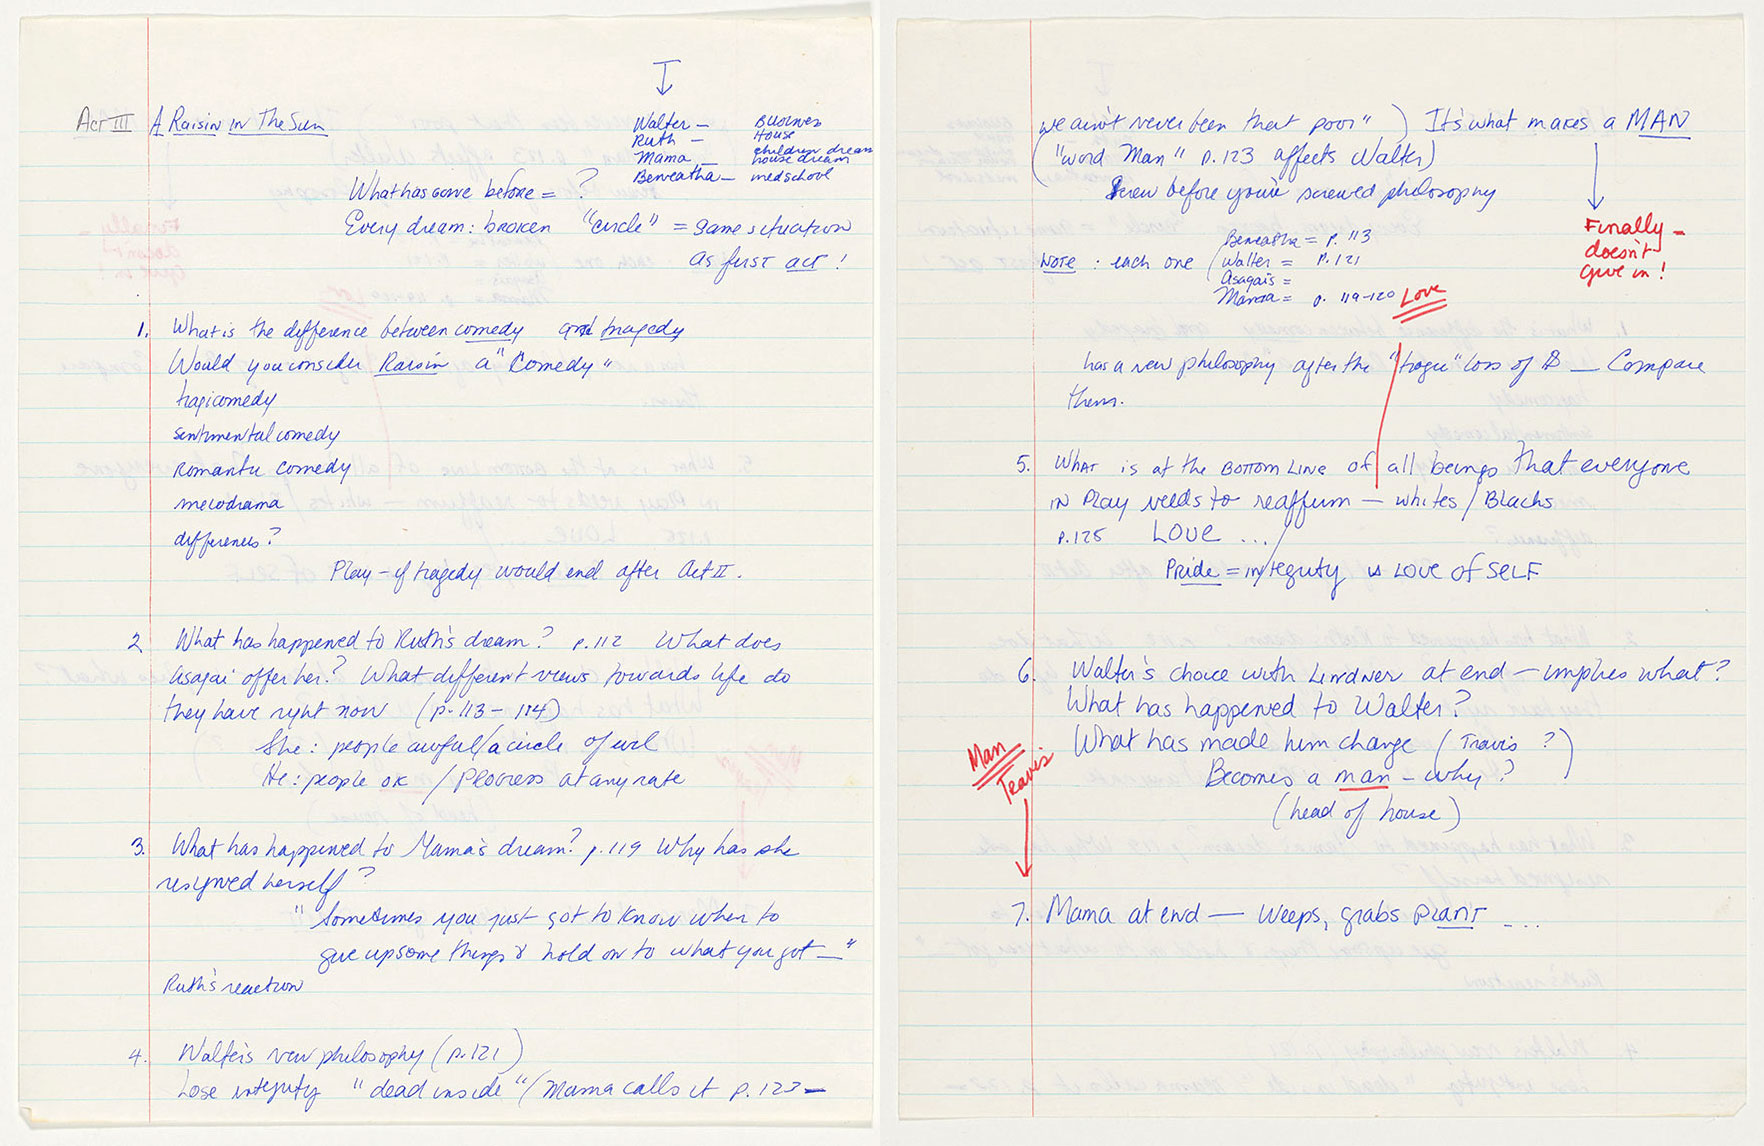 Act III A Raisin in The Sun
Walter — Business
Ruth — House
Mama — children dream house dream
Beneatha — med school
What has gone before = ?
Every dream: broken "circle" = same situation
as first act !
1. What is the difference between comedy and tragedy
Would you consider Raisin a "Comedy"
tragicomedy
sentimental comedy
romantic comedy
melodrama
differences?
Play — if tragedy would end after Act II.
2 What has happened to Ruth's dream? p.112 What does
Asagai offer her? What different views towards life do
they have right now (p. 113 - 114)
She: people awful/a circle of evil
He: people ok / Progress at any rate
3. What has happened to Mama's dream? p.119 Why has she
resigned herself?
"Sometimes you just got to know when to
give up some things & hold on to what you got —"
Ruth's reaction
4. Walter's new philosophy (p.121)
Lose integrity "dead inside"/Mama calls it p. 123—
we ain't never been that poor") It's what makes a MAN
("word Man" p.123 affects Walter)
Screw before you're screwed philosophy
Finally —
doesn't
give in!
Beneatha = p. 113
Note: each one (Walter = p.121
Asagais =
Mama = p. 119-120 Love
has a new philosophy after the "tragic" loss of $ — Compare
them.
5. What is at the Bottom Line of all beings that everyone
in Play needs to reaffirm — whites/Blacks
p.125 LOVE ...
Pride = integrity is LOVE of SELF
6. Walter's choice with Lindner at end — implies what?
What has happened to Walter?
What has made him change (Travis ?)
Becomes a man — why?
(head of house)
Man
Travis
7. Mama at end — Weeps, grabs plant ....